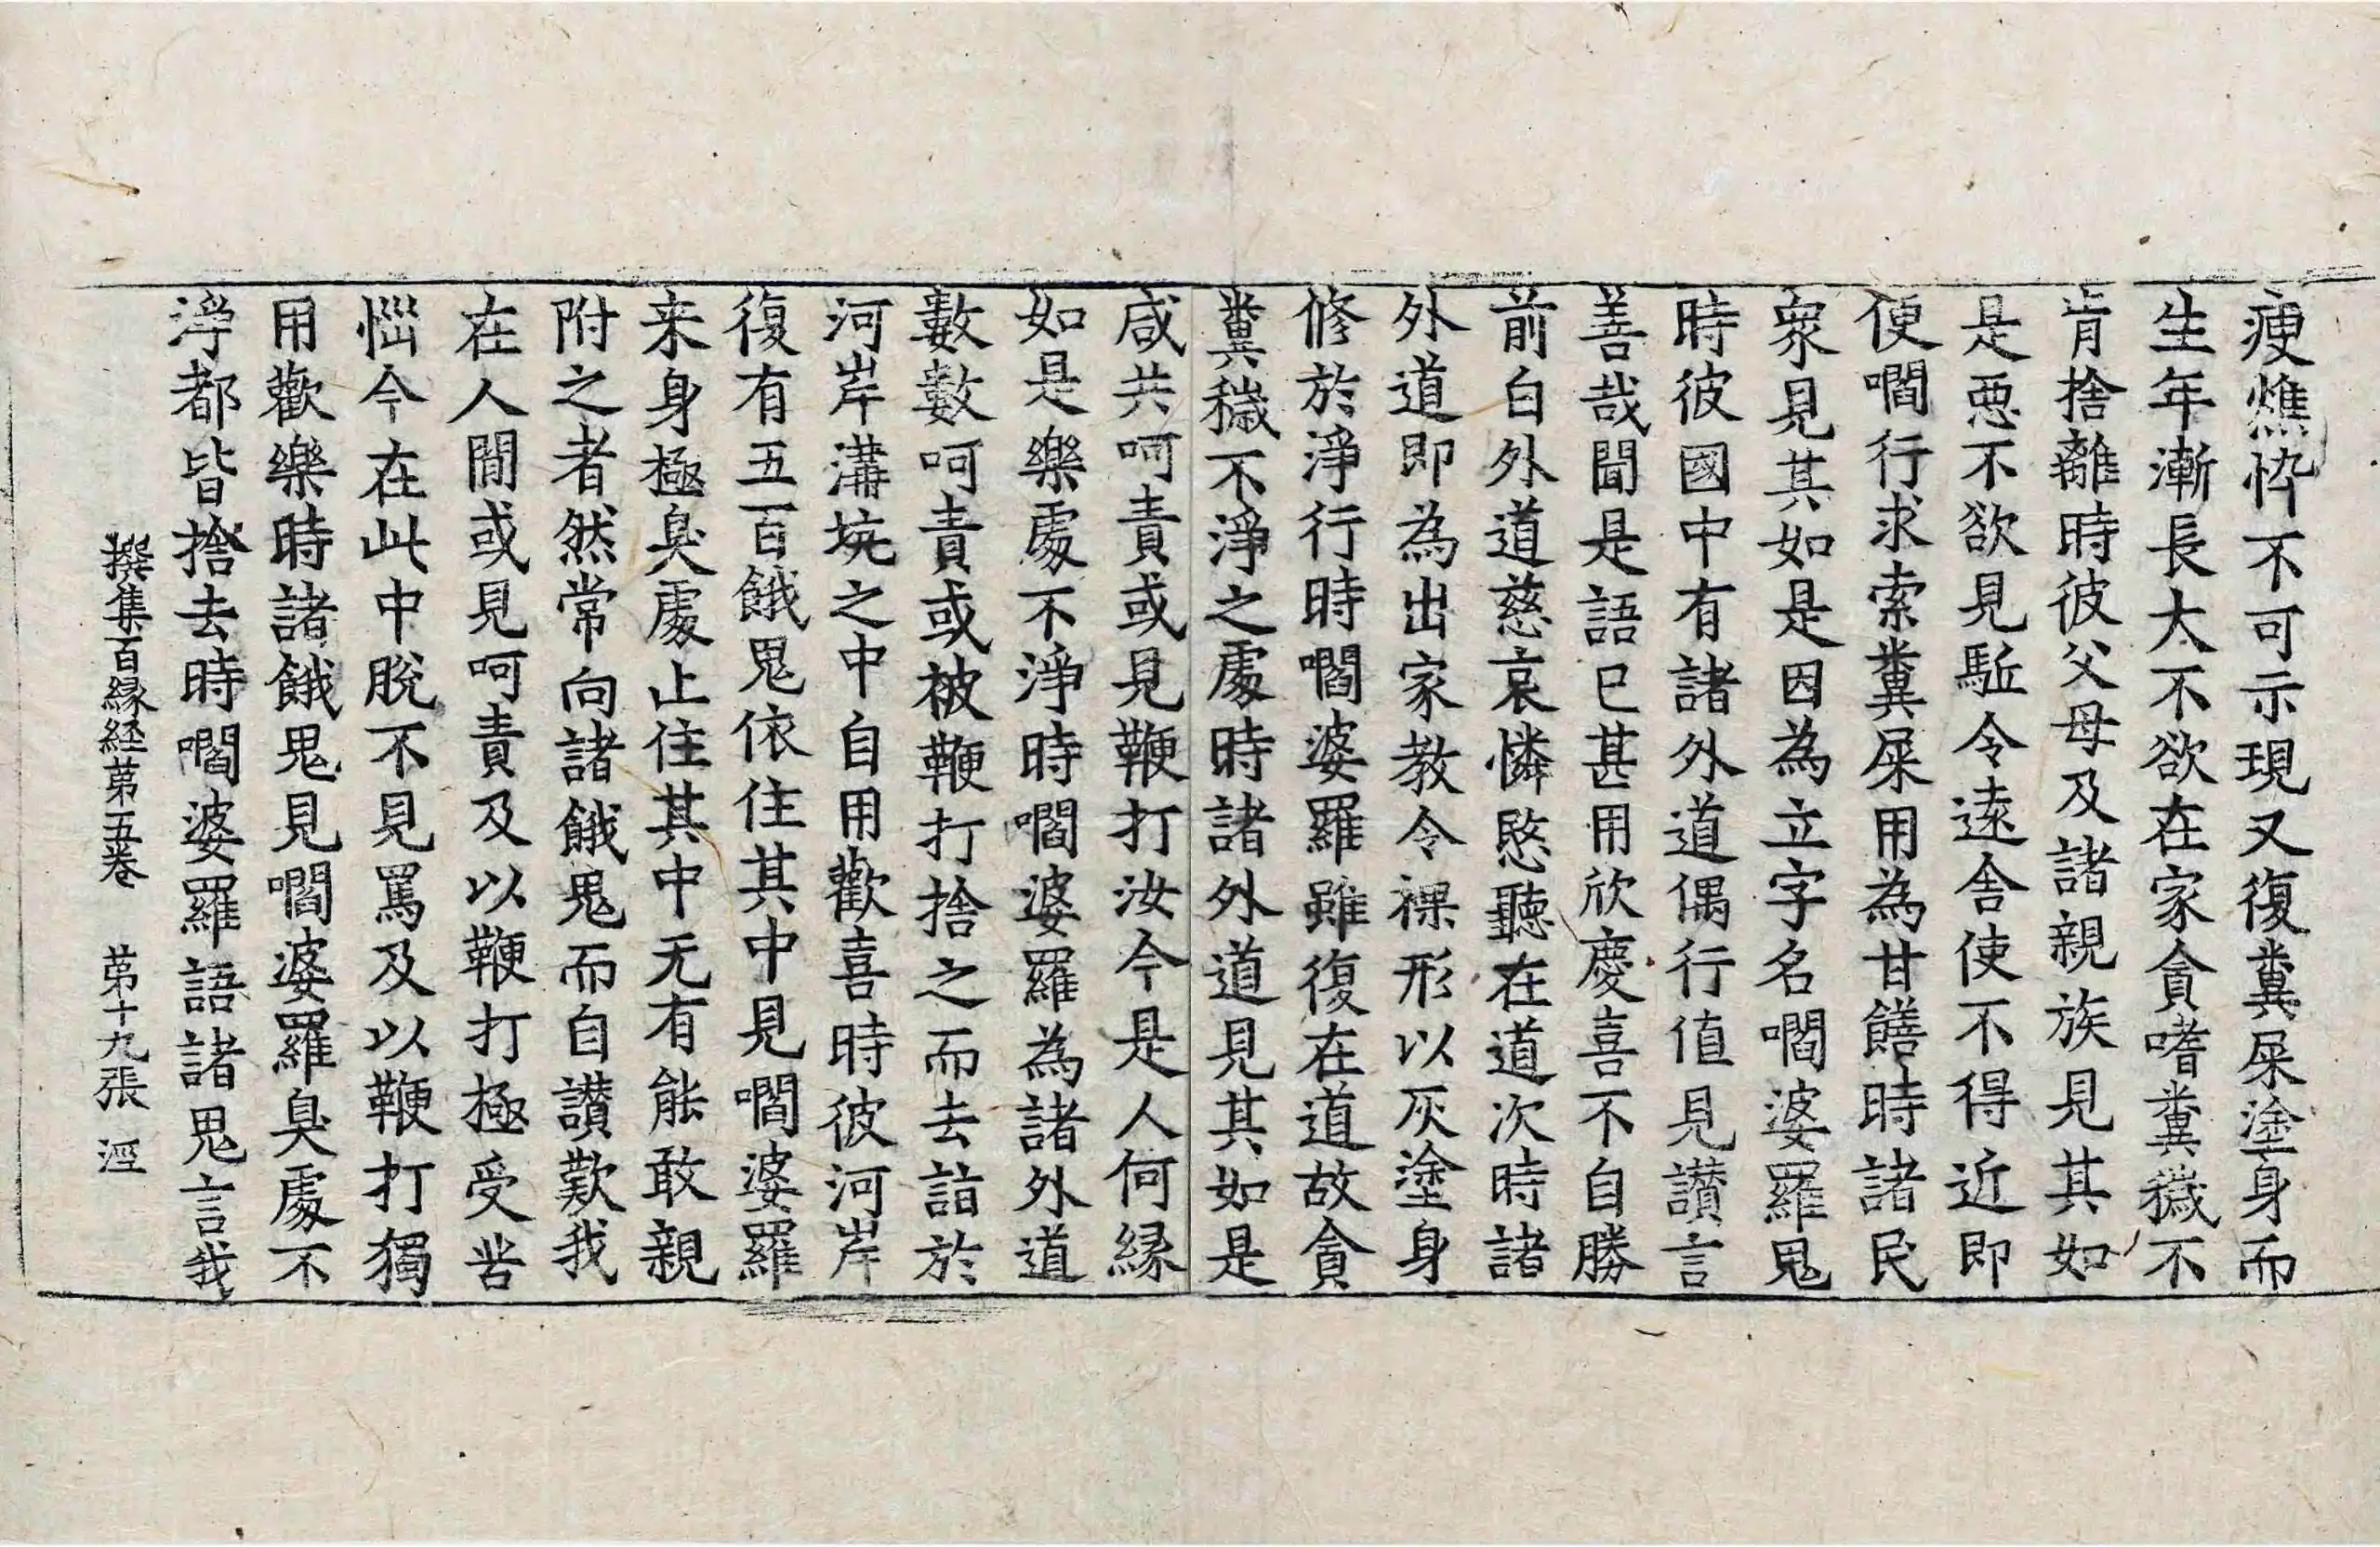 瘦燋忰不可示現又復糞屎塗身而
生年漸長大不欲在家貪嗜糞穢不
肯捨離時彼父母及諸親族見其如
是惡不欲見駈令遠舍使不得近即
便嚪行求索糞屎用為甘饍時諸民
衆見其如是因為立字名嚪婆羅鬼
時彼國中有諸外道偶行值見讃言
善哉聞是語已甚用欣慶喜不自勝
前白外道慈哀憐愍聽在道次時諸
外道即為出家教令裸形以灰塗身
修於淨行時嚪婆羅雖復在道故貪
糞穢不淨之處時諸外道見其如是
咸共呵責或見鞭打汝今是人何縁
如是樂處不淨時嚪婆羅為諸外道
數數呵責或被鞭打捨之而去詣於
河岸溝坑之中自用歡喜時彼河岸
復有五百餓鬼依住其中見嚪婆羅
来身極臭處止住其中无有能敢親
附之者然常向諸餓鬼而自讃歎我
在人間或見呵責及以鞭打極受苦
惱今在此中脫不見罵及以鞭打獨
用歡樂時諸餓鬼見嚪婆羅臭處不
淨都皆捨去時嚪婆羅語諸鬼言我
撰集百縁経第五卷 第十九張 涇